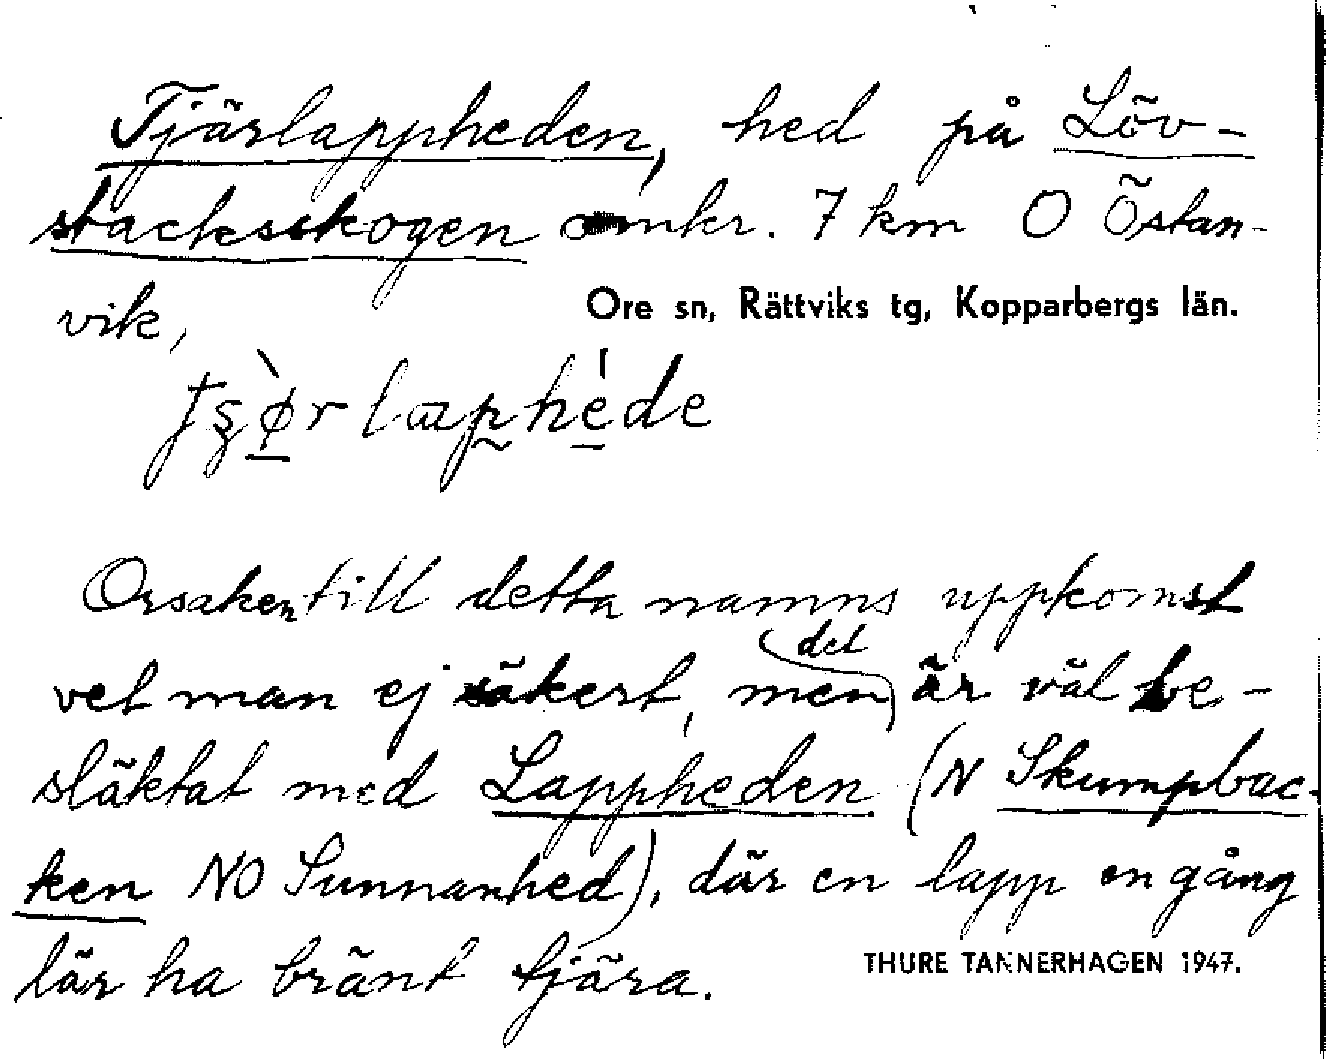 Tjärlappheden, hed på Löv-
stacksskogen omkr. 7 km O Östan-
vik,
Ore sn, Rättviks tg, Kopparbergs län.
Orsaken till detta namns uppkomst
vet man ej säkert, men det är väl be-
släktat med Lappheden (N Skumpbac-
ken NO Sunnanhed), där en lapp en gång
lär ha bränt tjära.
THURE TANNERHAGEN 1947.